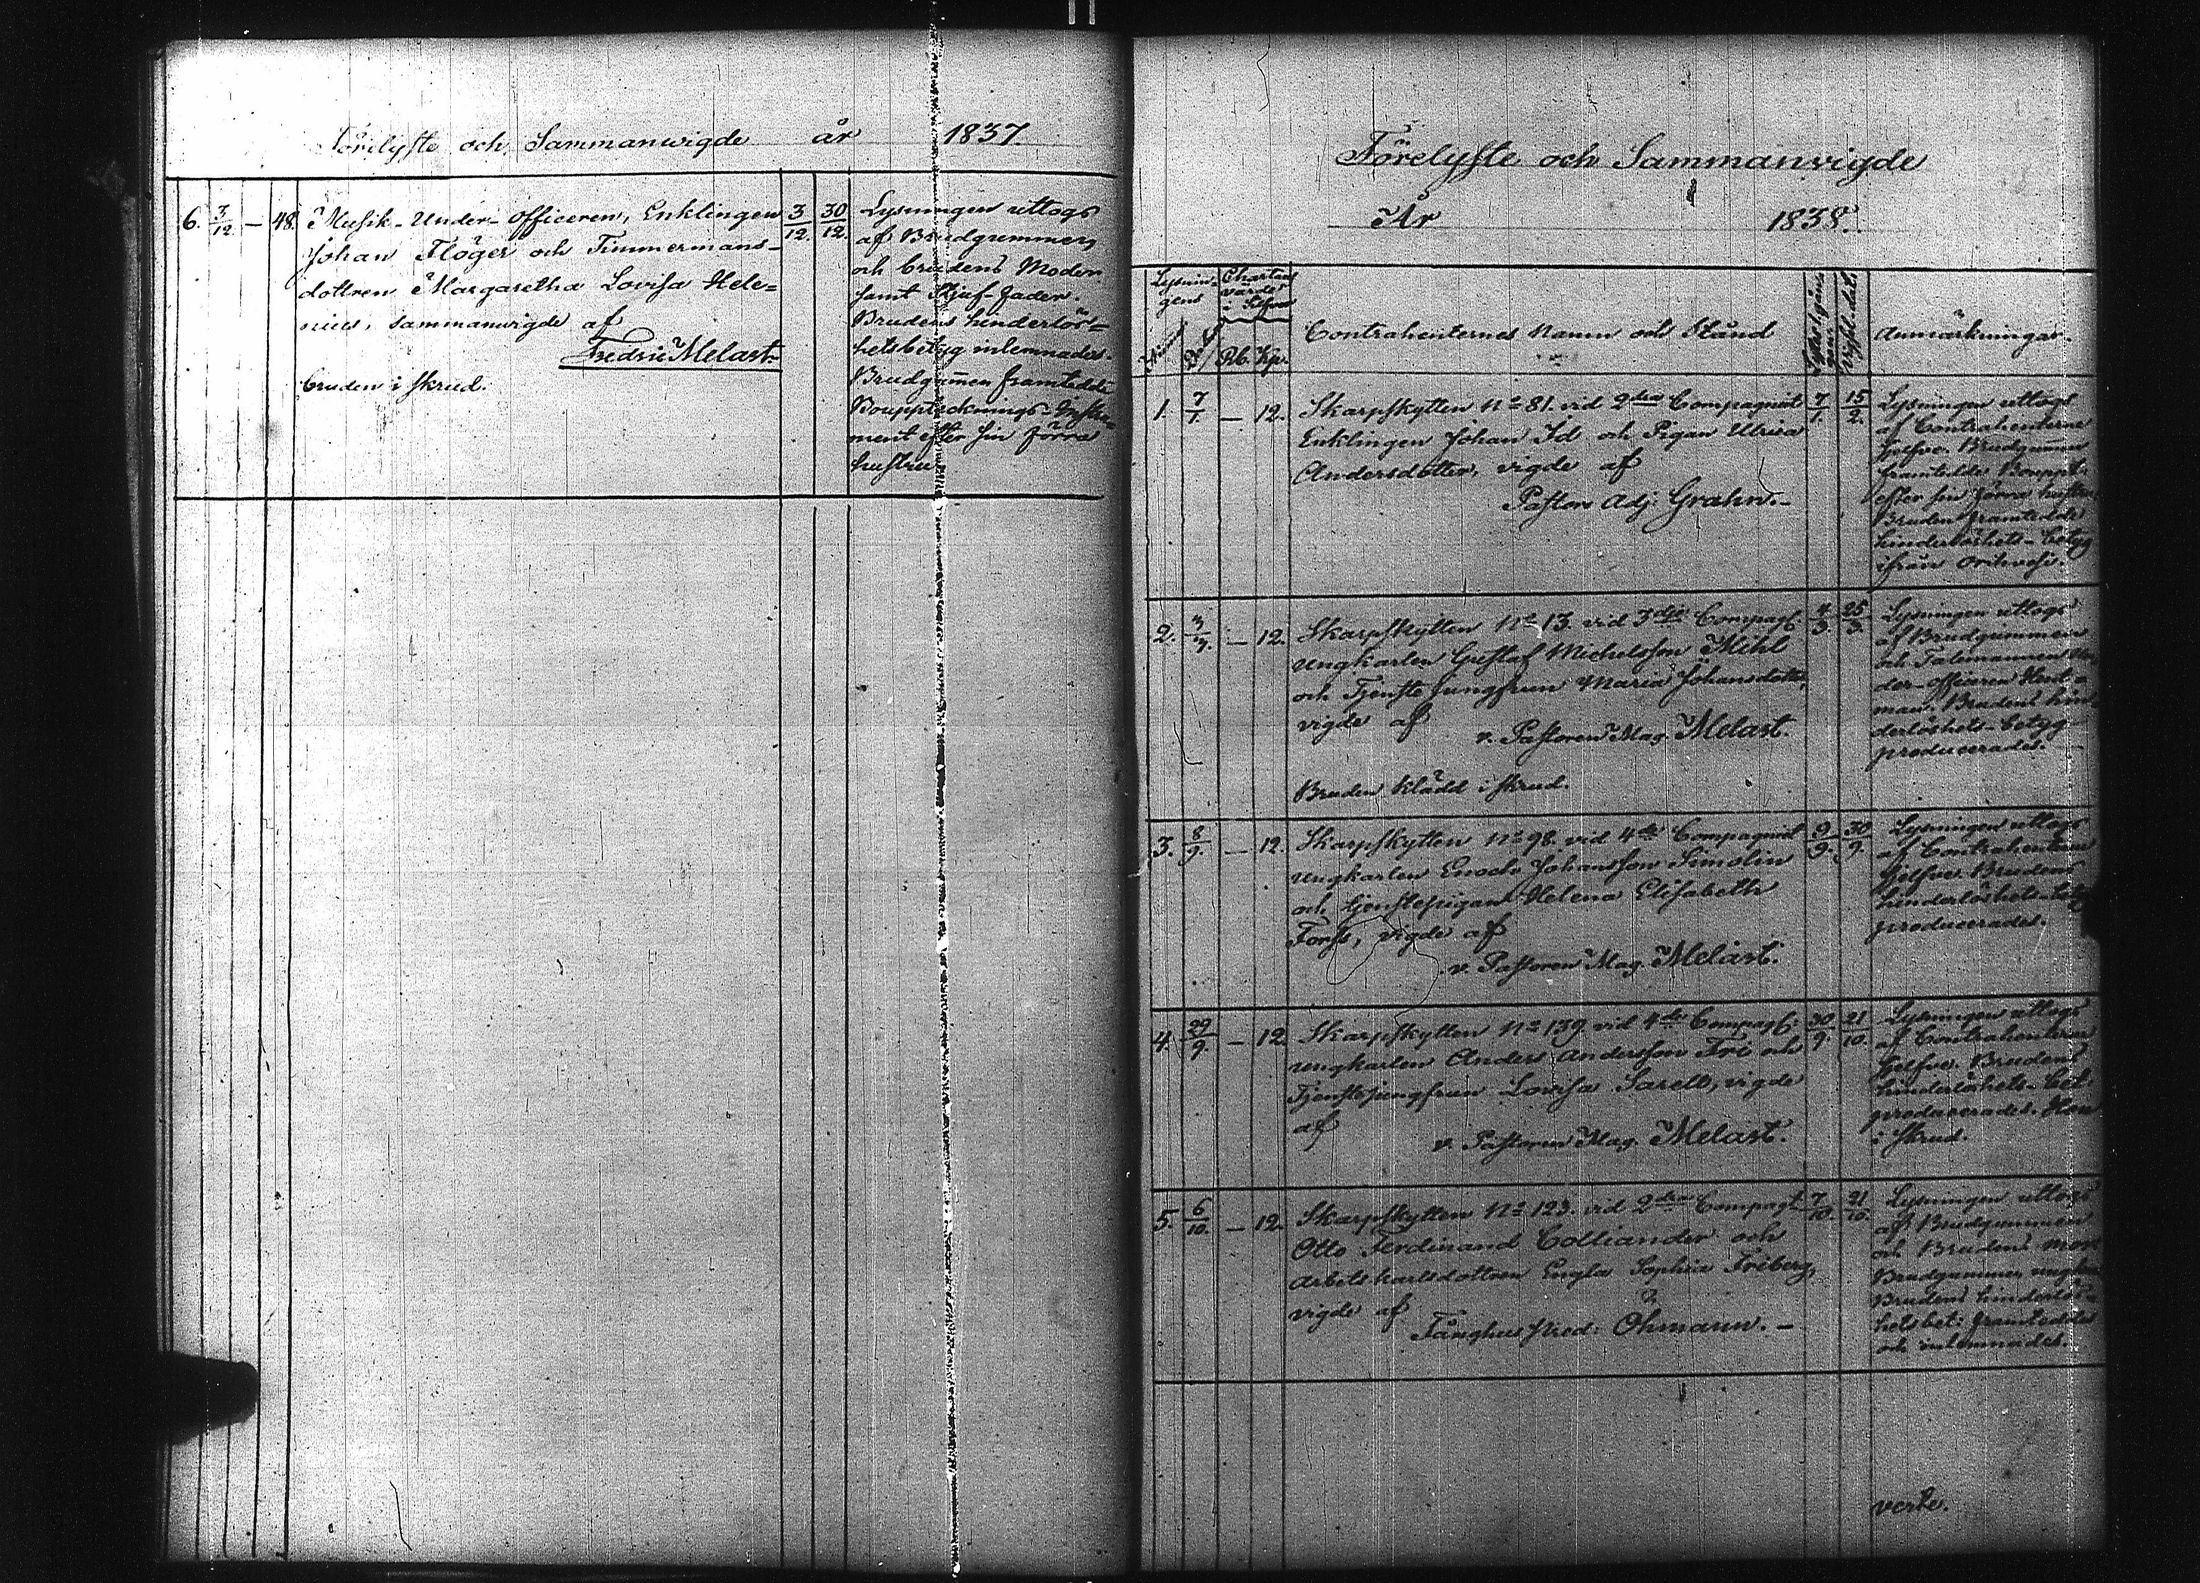 Förelyste och Sammanwigde år 1837.
6. 3/12. — 48. Musik-Under-officeren, Enklingen 3/12. 30/12.
Johan Flöger och Timmermans-
dottren Margaretha Lovisa Hele=
nius, sammanwigde af
Fredric Melart
bruden i skrud.
Lysningen uttogs
af Brudgummen
och brudens Moder
samt Stjuf-fader.
Brudens hinderlös=
hetsbetyg inlemnades.
Brudgumen framtedde
Boupptecknings-Instru=
ment efter sin förra
hustru
Förelyste och Sammanvigde
År 1838.
Lysnin-
gens
Chartæ
värde
i Silfver
Rb. Kp.
Contrahenternes namn och Stånd
Anmärkningar.
1. 7/1. — 12. Skarpskytten No 81. vid 2dra Compagniet 7/1. 15/2.
Enklingen Johan Id och Pigan Ulrica
Andersdotter, vigde af
Pastors Adj: Grahn.—
Lysningen uttogs
af Contrahenterne
sjelfve. Brudgummen
framtedde Bouppt:
efter sin förra hustru
Bruden framtedde
hinderlöshets-betyg
ifrån Orihvesi.
2. — 12. Skarpskytten No 13. vid 3dje Compagt: 4/3. 25/3.
ungkarlen Gustaf Michelsson Mihl
och Tjenstejungfrun Maria Johansdotter,
vigde af
v. Pastoren Mag. Melart.
Bruden klädd i skrud.
Lysningen uttogs
af Brudgummen
och Talemannen Un
der-officeren
man. Brudens hin
derlöshets-betyg
producerades. —
3. 8/9. — 12. Skarpskytten No 98. vid 4de Compagniet 9/9. 30/9.
ungkarlen Enoch Johansson Simolin
och tjenstepigan Helena Elisabeth
Forss, vigde af
v. Pastoren Mag. Melart.
Lysningen uttogs
af Contrahenterne
sjelfve. Brudens
hinderlöshets-betyg
producerades.
4. 29/9. — 12 Skarpskytten No 139 vid 4de Compagt: 30/9 21/10.
ungkarlen Anders Andersson Fri och
Tjenstejungfrun Lovisa Sarell, vigde
af
v. Pastoren Mag. Melart.
Lysningen uttogs
af Contrahenterne
sjelfve. Brudens
hinderlöshets-bet.
producerades. Hon
i skrud.
5. 6/10. — 12. Skarpskytten No 123. vid 2dra Compagt. 7/10. 21/10.
Otto Ferdinand Colliander och
arbetskarlsdottren Engla Sophia Friberg,
vigde af
Fånghuspred: Öhmann. —
Lysningen uttogs
af Brudgummen
och Brudens mor
Brudgummen ungkarl
Brudens hinderlös=
hetsbet: framteddes
och inlemnades.
verte.